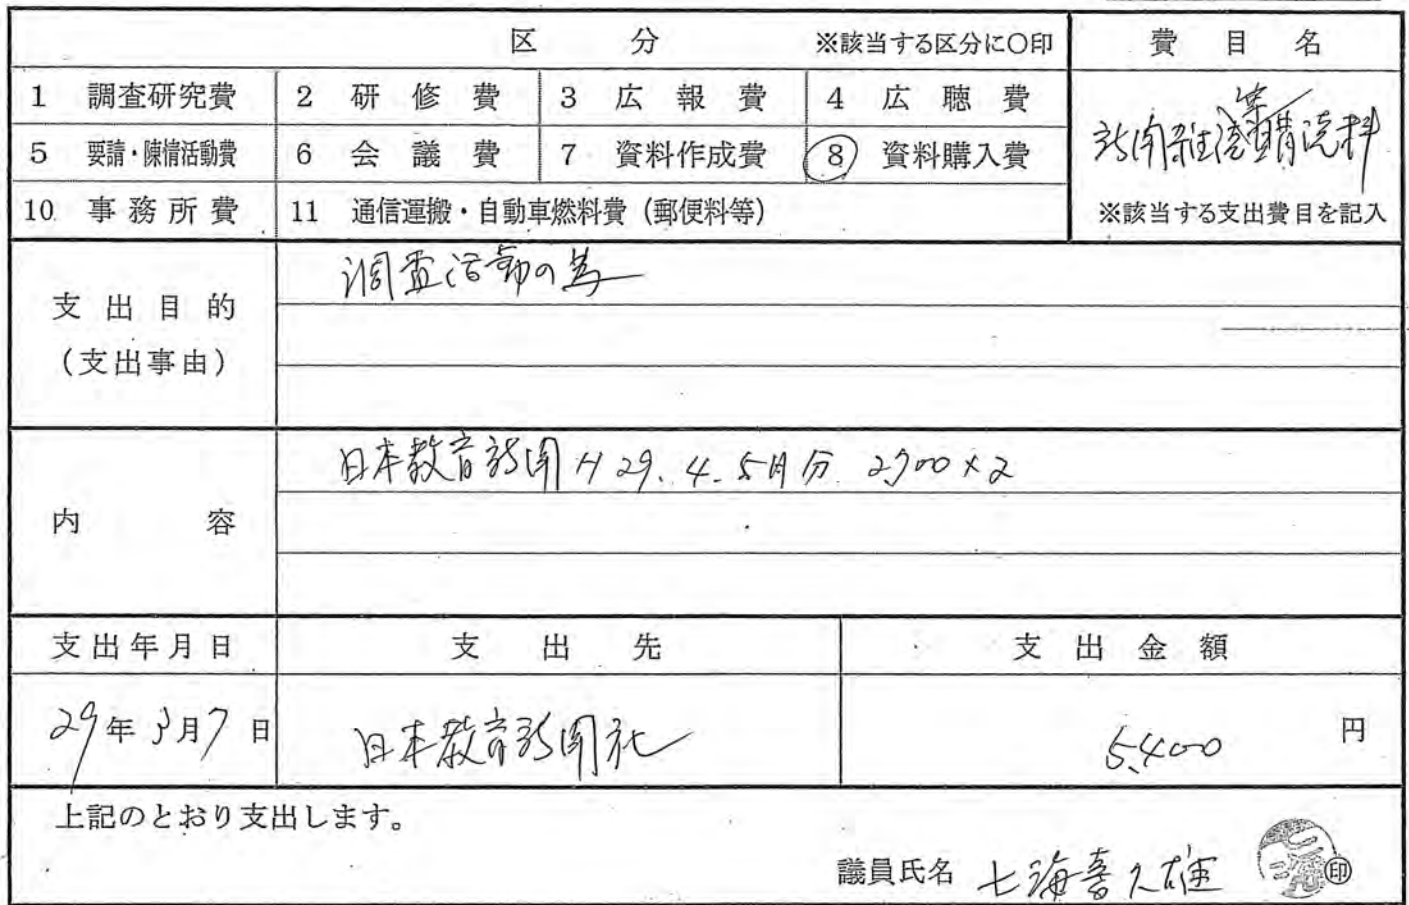 区 分 ※該当する区分に○印 費 目 名
1 調査研究費 2 研 修 費 3 広 報 費 4 広 聴 費
5 要請・陳情活動費 6 会 議 費 7 資料作成費 8 資料購入費
新聞雑誌等購読料
10 事務所費 11 通信運搬・自動車燃料費（郵便料等）
※該当する支出費目を記入
支出目的
（支出事由）
調査活動の為
内 容
日本教育新聞 H29.4.5月分 2700×2
支出年月日 支 出 先 支 出 金 額
29年3月7日 日本教育新聞社 5,400 円
上記のとおり支出します。
議員氏名 七海喜久雄 印